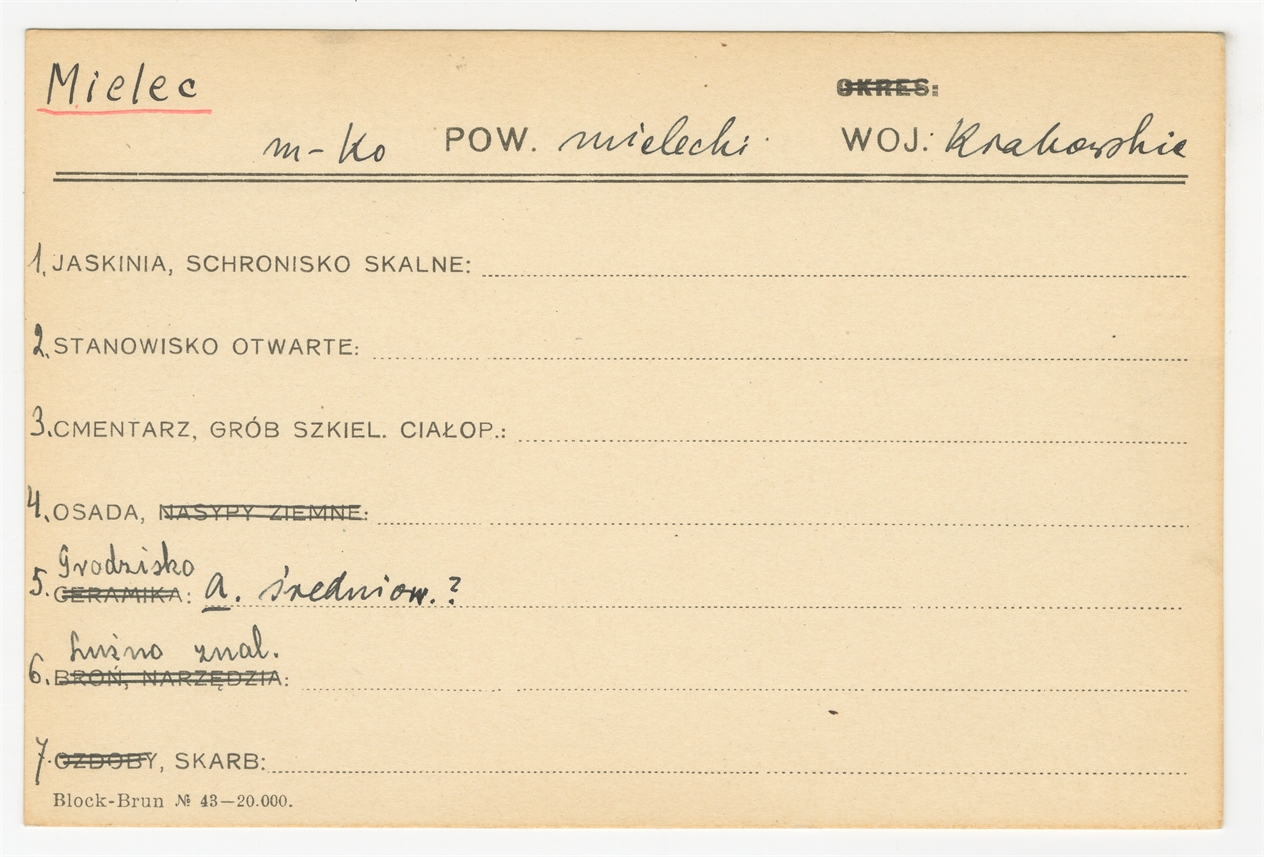 Mielec
OKRES:
m-ko POW. mielecki WOJ: Krakowskie
1. JASKINIA, SCHRONISKO SKALNE:
2. STANOWISKO OTWARTE:
3. CMENTARZ, GRÓB SZKIEL. CIAŁOP.:
4. OSADA, NASYPY ZIEMNE:
Grodzisko
5. CERAMIKA: A. średniow.?
Luźno znal.
6. BROŃ, NARZĘDZIA:
7. OZDOBY, SKARB:
Block-Brun № 43—20.000.